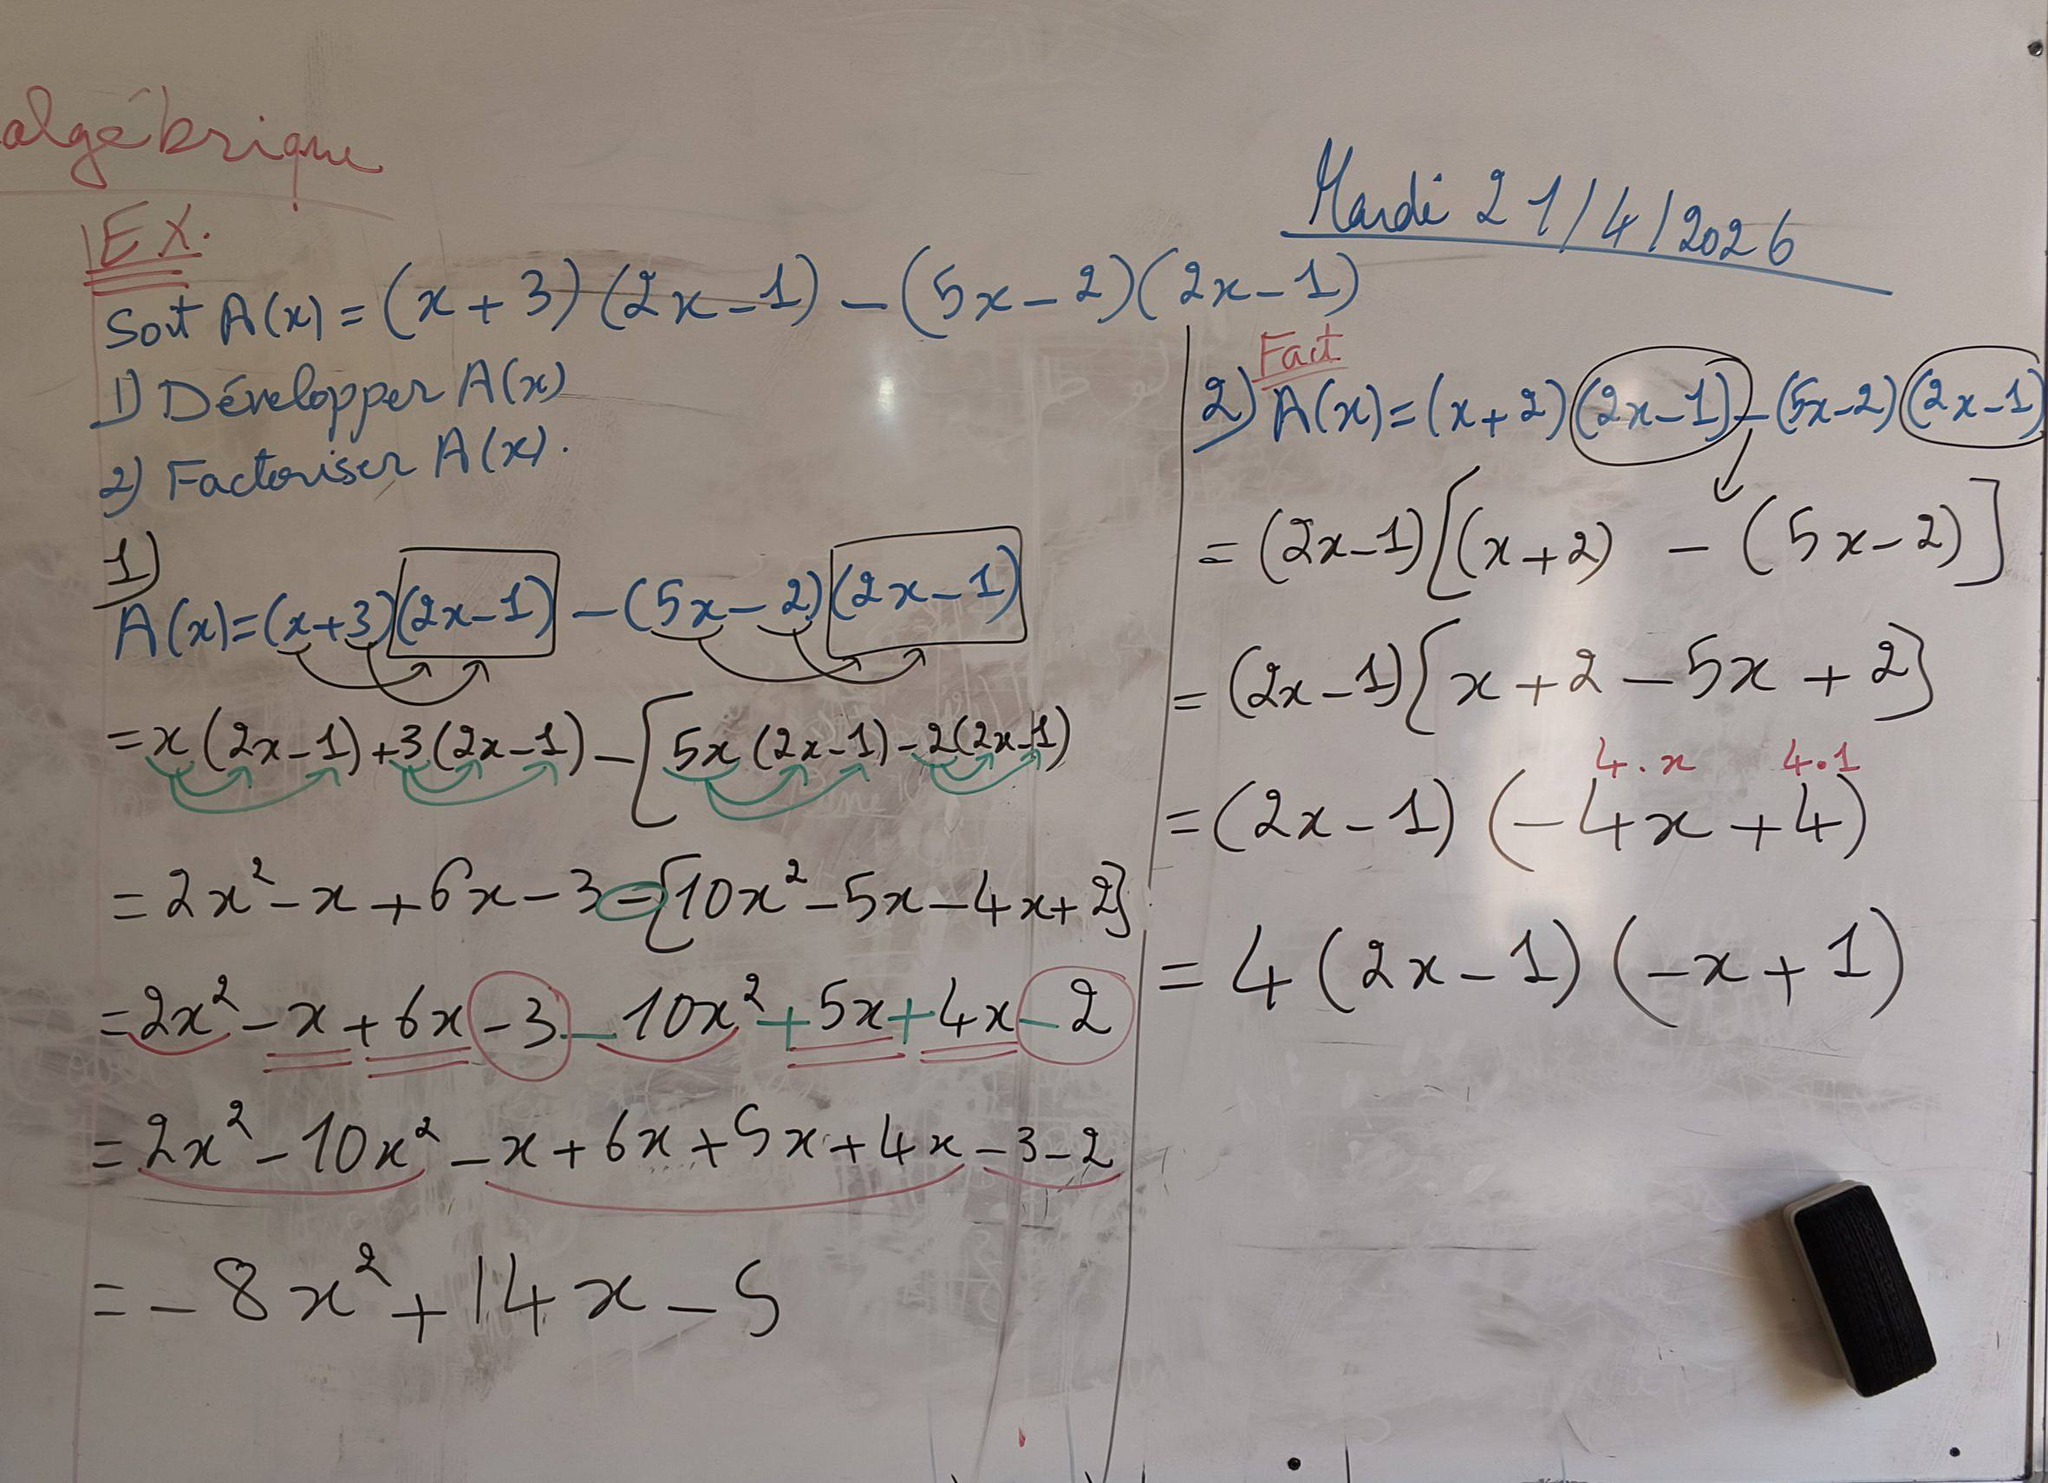 algébrique
Mardi 21/4/2026
EX.
Soit A(x) = (x+3)(2x-1) - (5x-2)(2x-1)
1) Développer A(x)
2) Factoriser A(x).
1)
A(x) = (x+3)(2x-1) - (5x-2)(2x-1)
= x(2x-1)+3(2x-1) - [5x(2x-1)-2(2x-1)
= 2x² - x + 6x - 3 - [10x² - 5x - 4x + 2]
= 2x² - x + 6x - 3 - 10x² + 5x + 4x - 2
= 2x² - 10x² - x + 6x + 5x + 4x - 3 - 2
= - 8x² + 14x - 5
Fact
2) A(x) = (x+2)(2x-1) - (5x-2)(2x-1)
= (2x-1)[(x+2) - (5x-2)]
= (2x-1)[x+2-5x+2]
4.x 4.1
= (2x-1)(-4x+4)
= 4(2x-1)(-x+1)